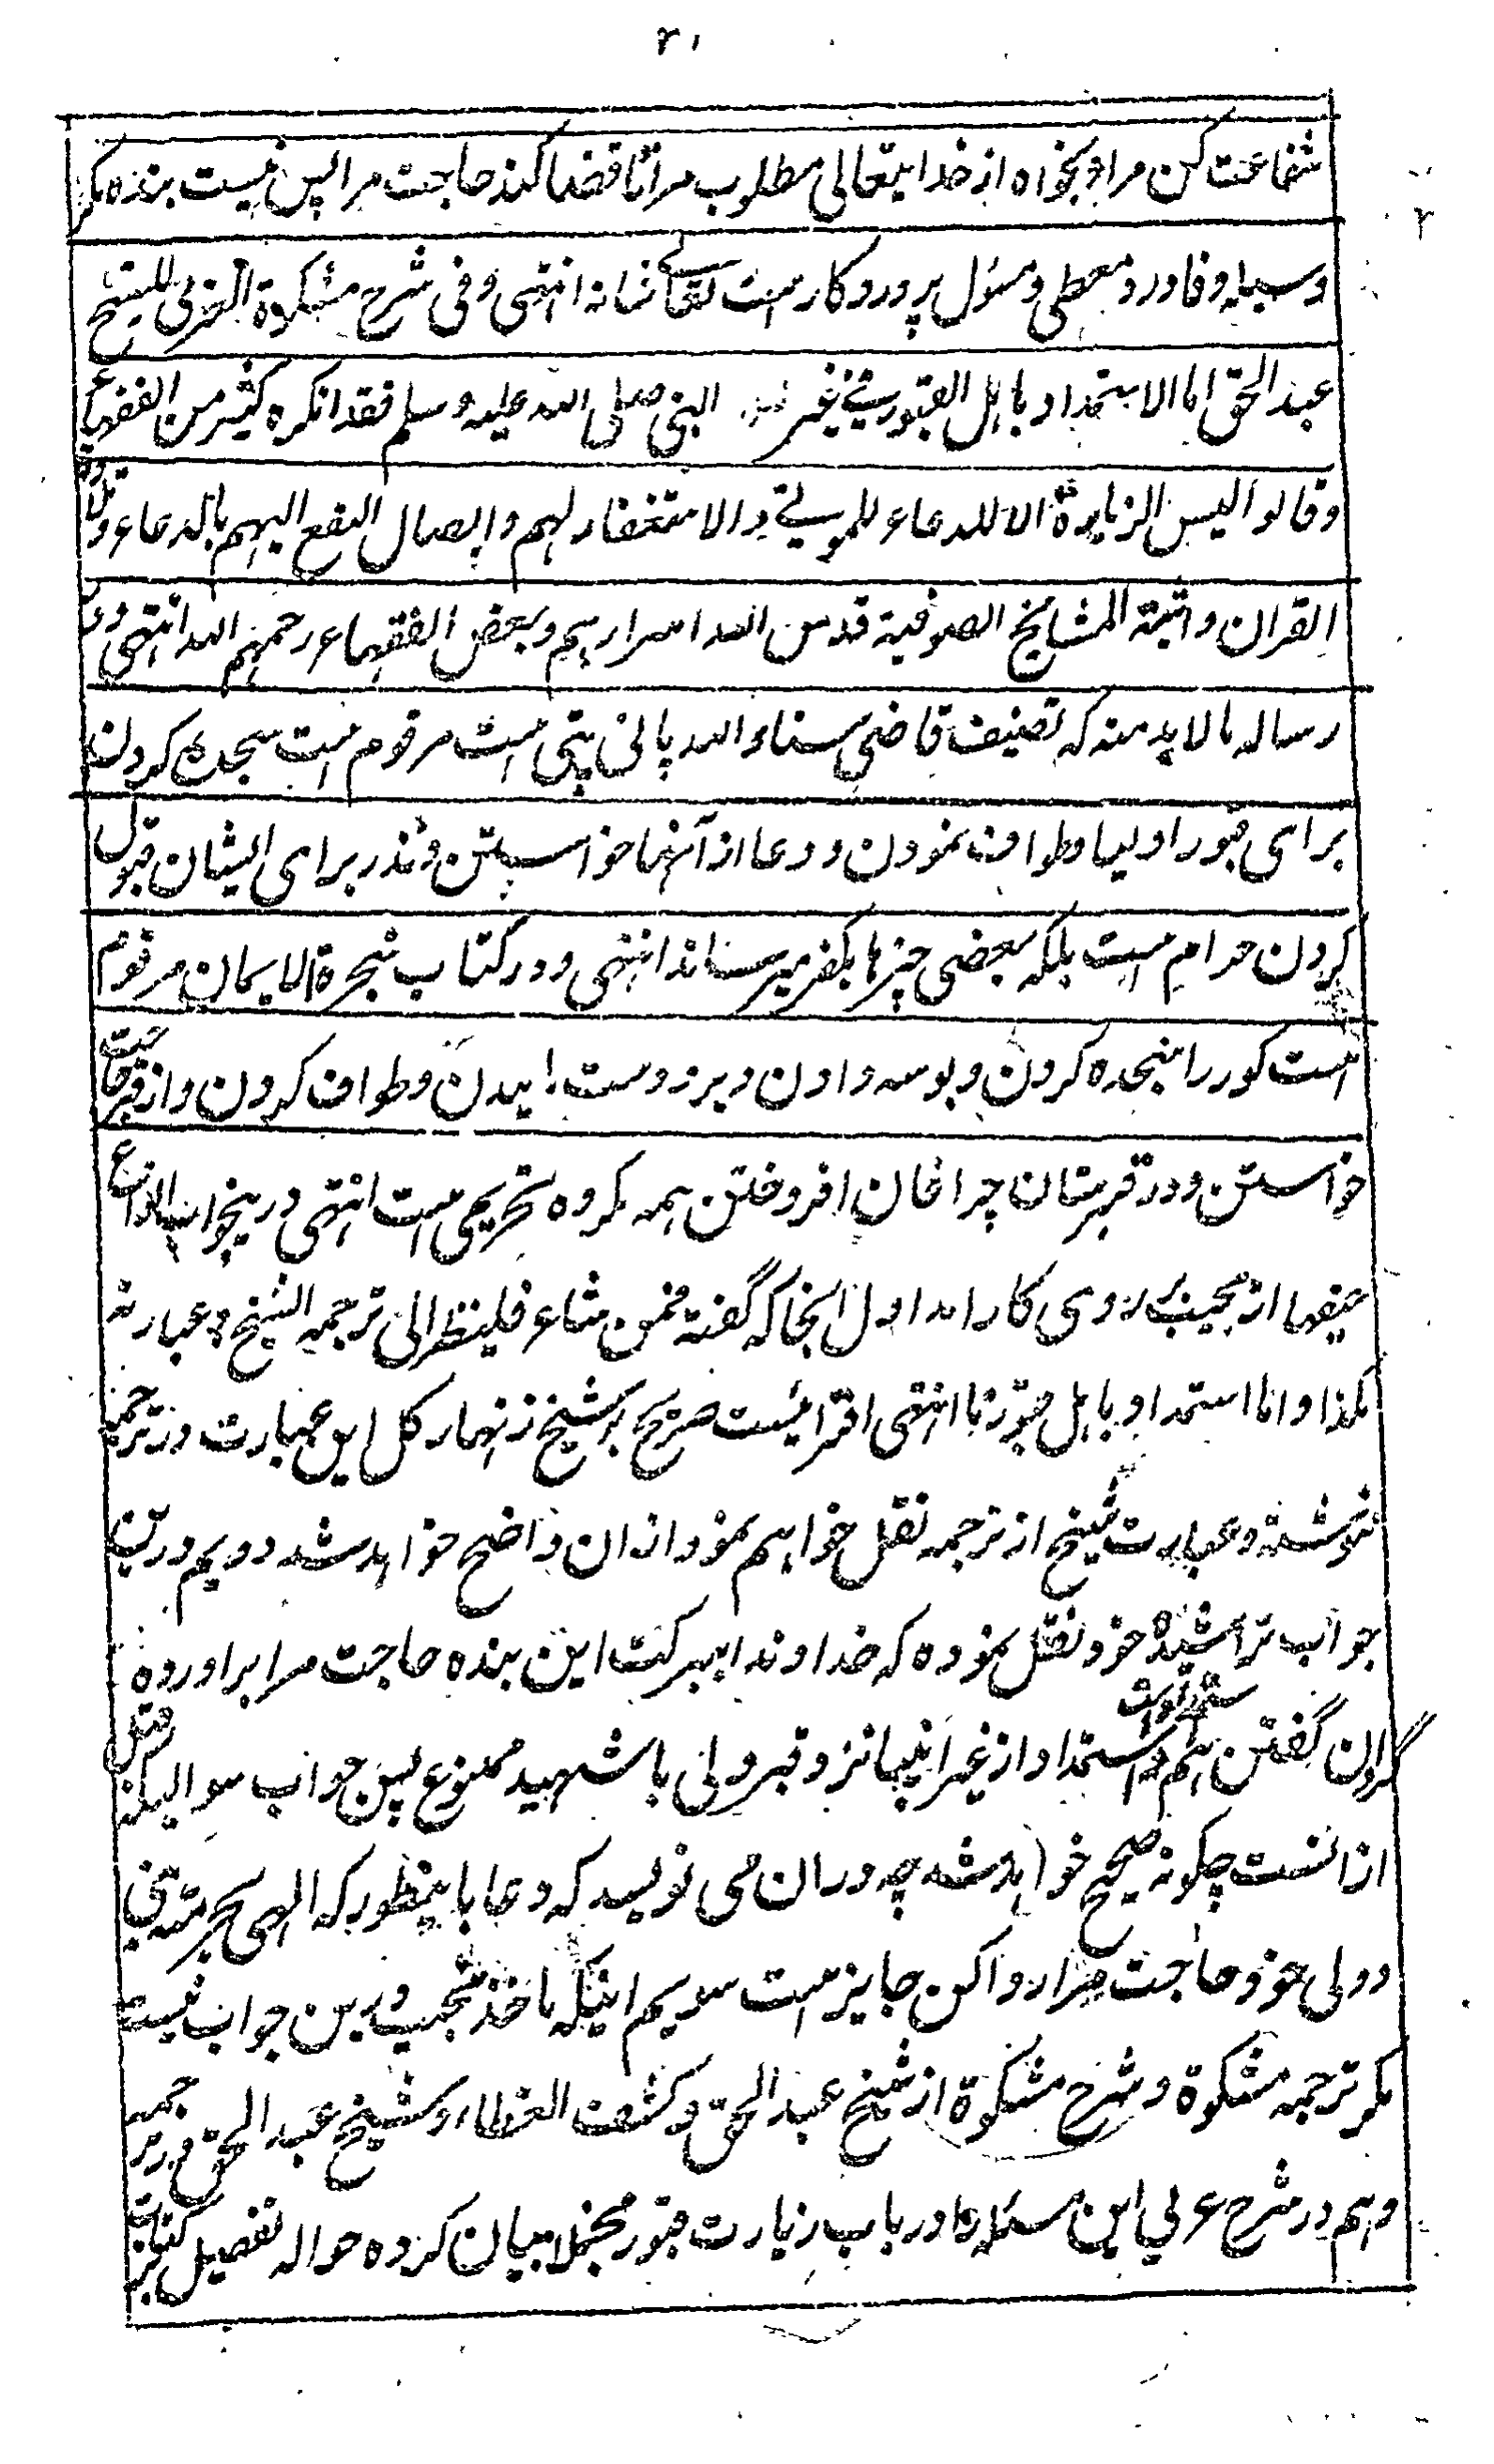 ۲۱
شفاعت کن مرا و بخواه از خدایتعالی مطلوب مرا تا قضا کند حاجت مرا پس نیست بنده مگر
وسیله و قادر و معطی و مسئول پروردکار ست تعالی شانه انتهی و فی شرح مشکوة العربی للشیخ
عبد الحق اما الاستمداد باهل القبور فی غیر النبی صلی الله علیه وسلم فقد انکره کثیر من الفقهاء
و قالوا لیس الزیارة الا للدعاء للموتی و الاستغفار لهم و ایصال النفع الیهم بالدعاء و تلاوة
القران و اثبته المشایخ الصوفیة قدس الله اسرارهم و بعض الفقهاء رحمهم الله انتهی و در
رساله مالابد منه که تصنیف قاضی سناء الله پانی پتی ست مرقوم ست سجده کردن
برای قبور اولیا و طواف نمودن و دعا از آنها خواستن و نذر برای ایشان قبول
کردن حرام ست بلکه بعضی چیزها بکفر میرساند انتهی و در کتاب شجرة الایمان مرقوم
ست کور را سجده کردن و بوسه دادن و برو دست مالیدن و طواف کردن و از قبر حاجت
خواستن و در قبرستان چراغان افروختن همه مکروه تحریمی ست انتهی درینجواب انواع
حیفها از مجیب بروی کار آمد اول انجا که گفته فمن شاء فلینظر الی ترجمه الشیخ و عبارته
هکذا و اما استمداد باهل قبور تا انتهی افترائیست صریح بر شیخ زنهار کل این عبارت در ترجمه
ننوشته و عبارت شیخ از ترجمه نقل خواهم نمود از ان واضح خواهد شد دویم درین
جواب تراشیده خود نقل نموده که خداوندا ببرکت این بنده حاجت مرا براورده
گردان گفتن هم استمداد ست و استمداد از غیر انبیا نزد قبر ولی یا شهید ممنوع پس جواب سوالیکه قبل
ازانست چگونه صحیح خواهد شد چه دران می نویسد که دعا باینطور که الهی بحرمت نبی
و ولی خود حاجت مرا روا کن جایز ست سویم اینکه ماخذ مجیب درین جواب نیست
مگر ترجمه مشکوة و شرح مشکوة از شیخ عبد الحق و کشف الغطاء و شیخ عبد الحق در ترجمه
و هم در شرح عربی این مسئله را در باب زیارت قبور مجملا بیان کرده حواله تفصیل